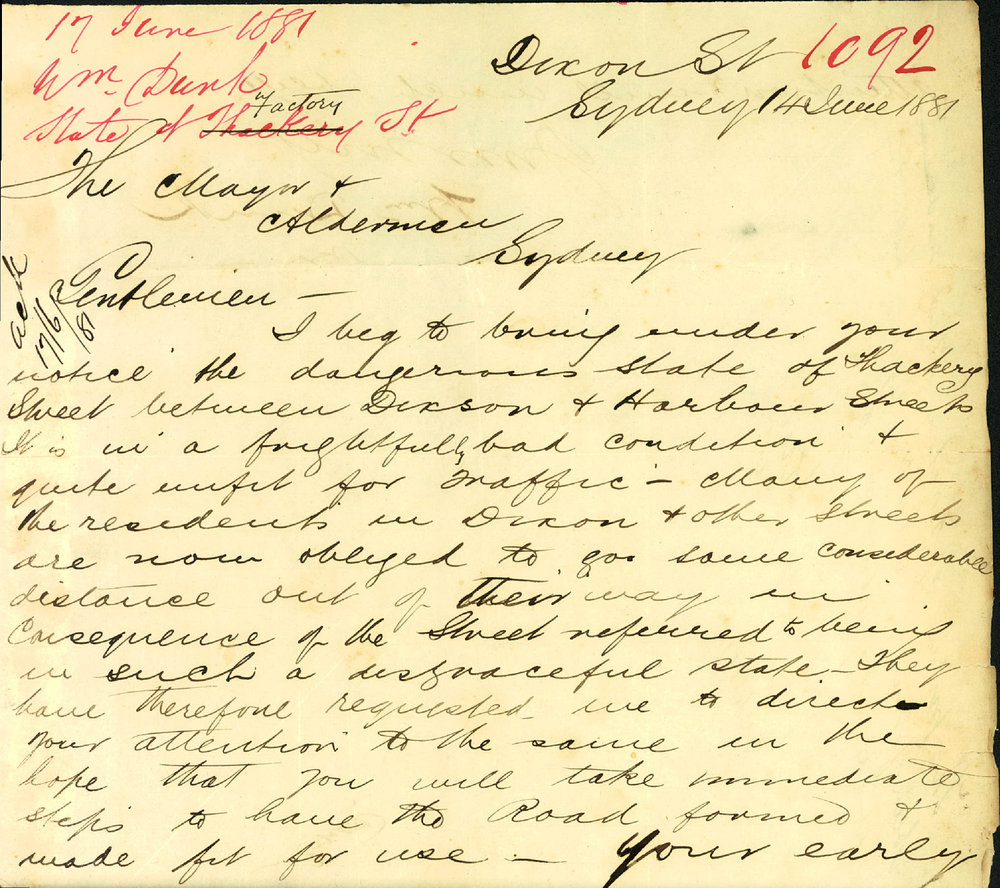 17 June 1881
Wm. Dunk
State of Thackery St
"Factory
1092
Dixon St
Sydney 14 June 1881
The Mayor &
Aldermen
Sydney
ack
17/6/81
Gentlemen —
I beg to bring under your
notice the dangerious state of Thackery
Street between Dixson & Harbour Streets
It is in a frightfully bad condition &
quite unfit for Traffic — Many of
the residents in Dixon & other Streets
are now obliged to go some considerable
distance out of their way in
Consequence of the Street referred to being
in such a disgraceful state — They
have therefore requested me to direct
your attention to the same in the
hope that you will take immediate
steps to have the Road formed &
made fit for use — Your early